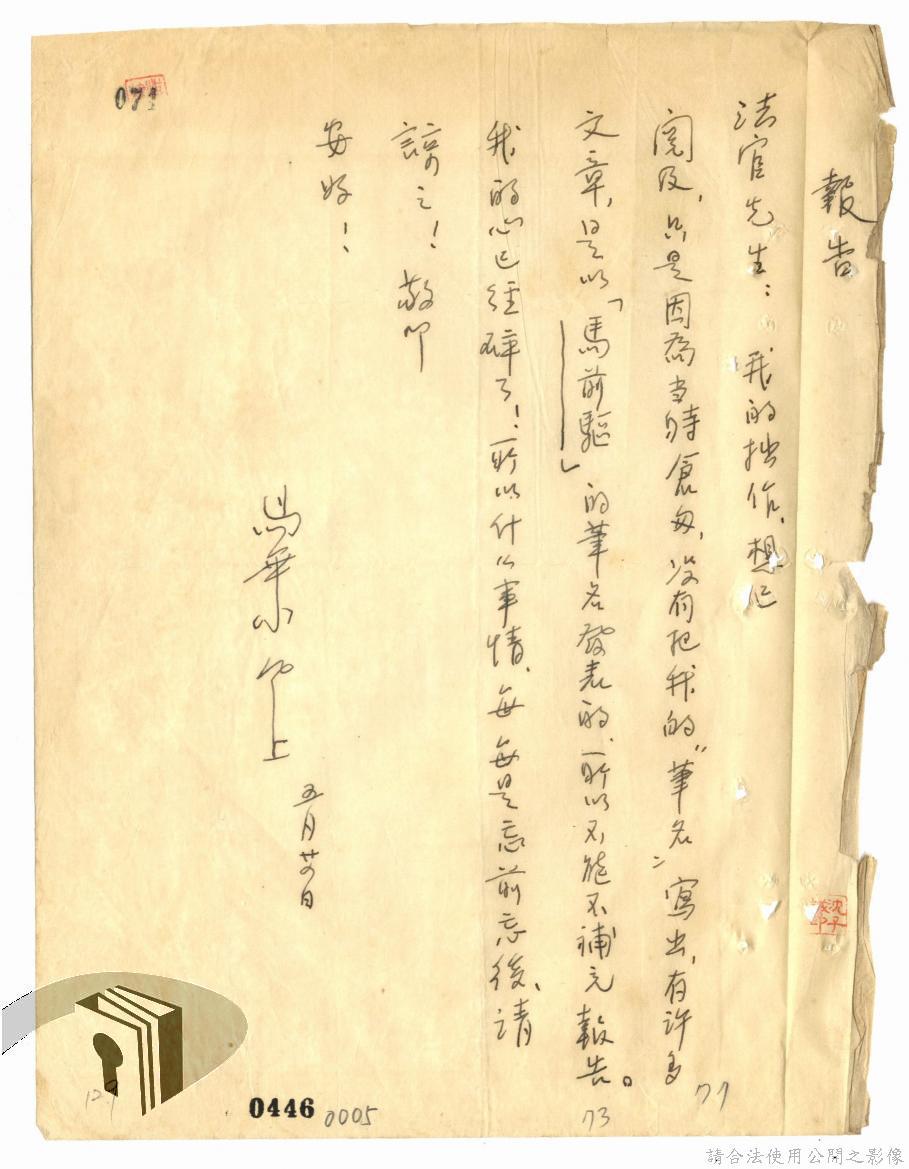 報告
法官先生：我的拙作，想已
閱及，只是因為当時倉匆，没有把我的"筆名"寫出，有許多
文章，是以「馬前驅」的筆名發表的，所以不能不補充報告。
我的心已經碎了！所以什么事情，每每是忘前忘後，請
諒之！敬叩
安好！
馬華 叩上
五月廿 日
071
0446
0005
73
77
129
請合法使用公開之影像